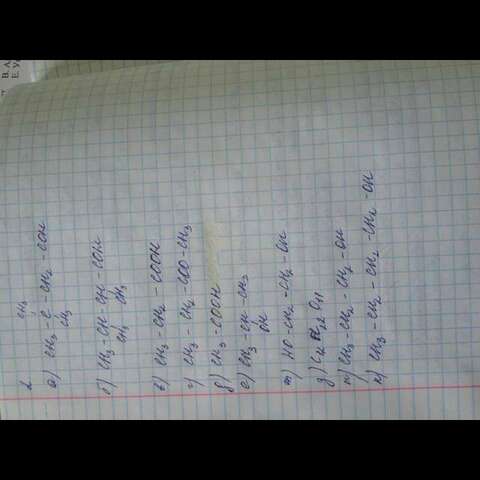 2.
CH₃
а) CH₃-C-CH₂-COH
CH₃
б) CH₃-CH-CH-COH
CH₃ CH₃
в) CH₃-CH₂-COOH
г) CH₃-CH₂-COO-CH₃
д) CH₃-COOH
е) CH₃-CH-CH₃
OH
ж) HO-CH₂-CH₂-OH
з) C₁₂H₂₂O₁₁
и) CH₃-CH₂-CH₂-OH
к) CH₃-CH₂-CH₂-CH₂-OH